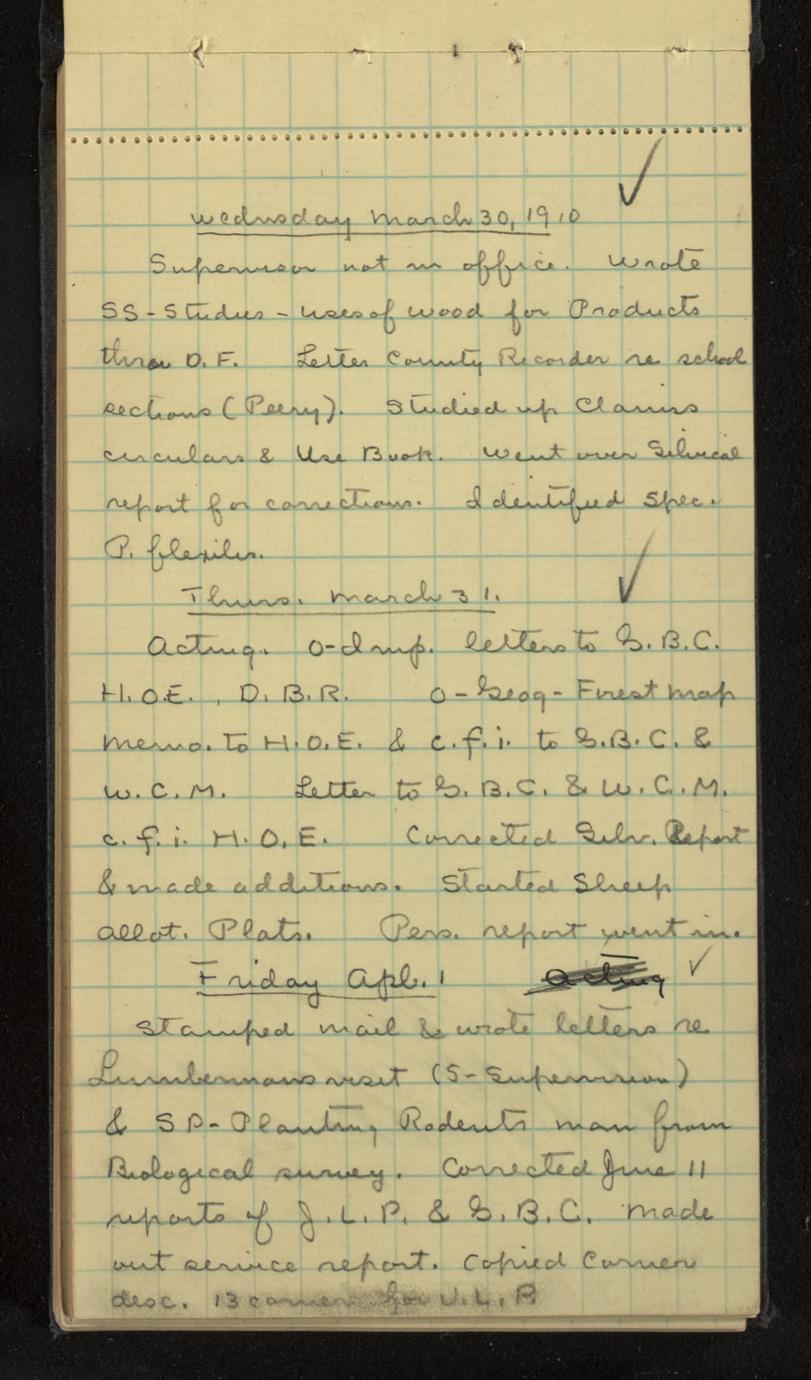 Wednesday March 30, 1910
Supervisor not in office. Wrote
SS-Studies - uses of wood for Products
thru D.F. Letter County Recorder re school
sections (Peery). Studied up Claims
circulars & Use Book. Went over Silvical
report for corrections. Identified Spec.
P. flexilis.
Thurs. March 31.
Acting. O-Imp. letters to G.B.C.
H.O.E., D.B.R. O-Geog-Forest map
memo. to H.O.E. & c.f.i. to G.B.C. &
W.C.M. Letter to G.B.C. & W.C.M.
c.f.i. H.O.E. Corrected Silv. Report
& made additions. Started Sheep
allot. Plats. Pers. report went in.
Friday Apl. 1 acting
Stamped mail & wrote letters re
Lumbermans visit (S-Supervision)
& SP-Planting Rodents man from
Biological survey. Corrected June 11
reports of J.L.P. & G.B.C. Made
out service report. Copied Corner
desc. 13 corner for J.L.P.